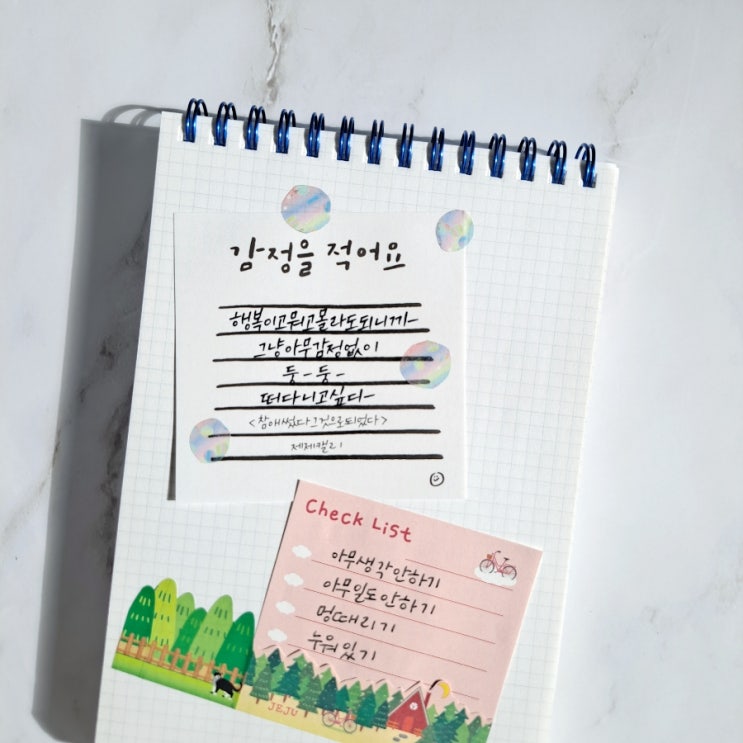 감정을 적어요
행복이고뭐고몰라도되니까-
그냥아무감정없이
둥-둥-
떠다니고싶다-
<참애썼다그것으로되었다>
제제캘리
Check List
아무생각안하기
아무일도안하기
멍때리기
누워있기
JEJU